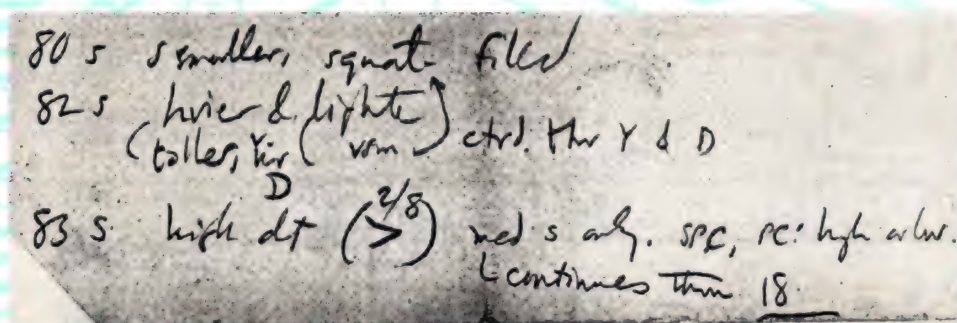 80 s smaller, squat filled
82 s hvier & lighte
(taller, Yir ( vsm ) ctrd. thr Y & D
D
83 s. high dt (> 2/8) med s only. SPC, PC: high or low.
continues thru 18